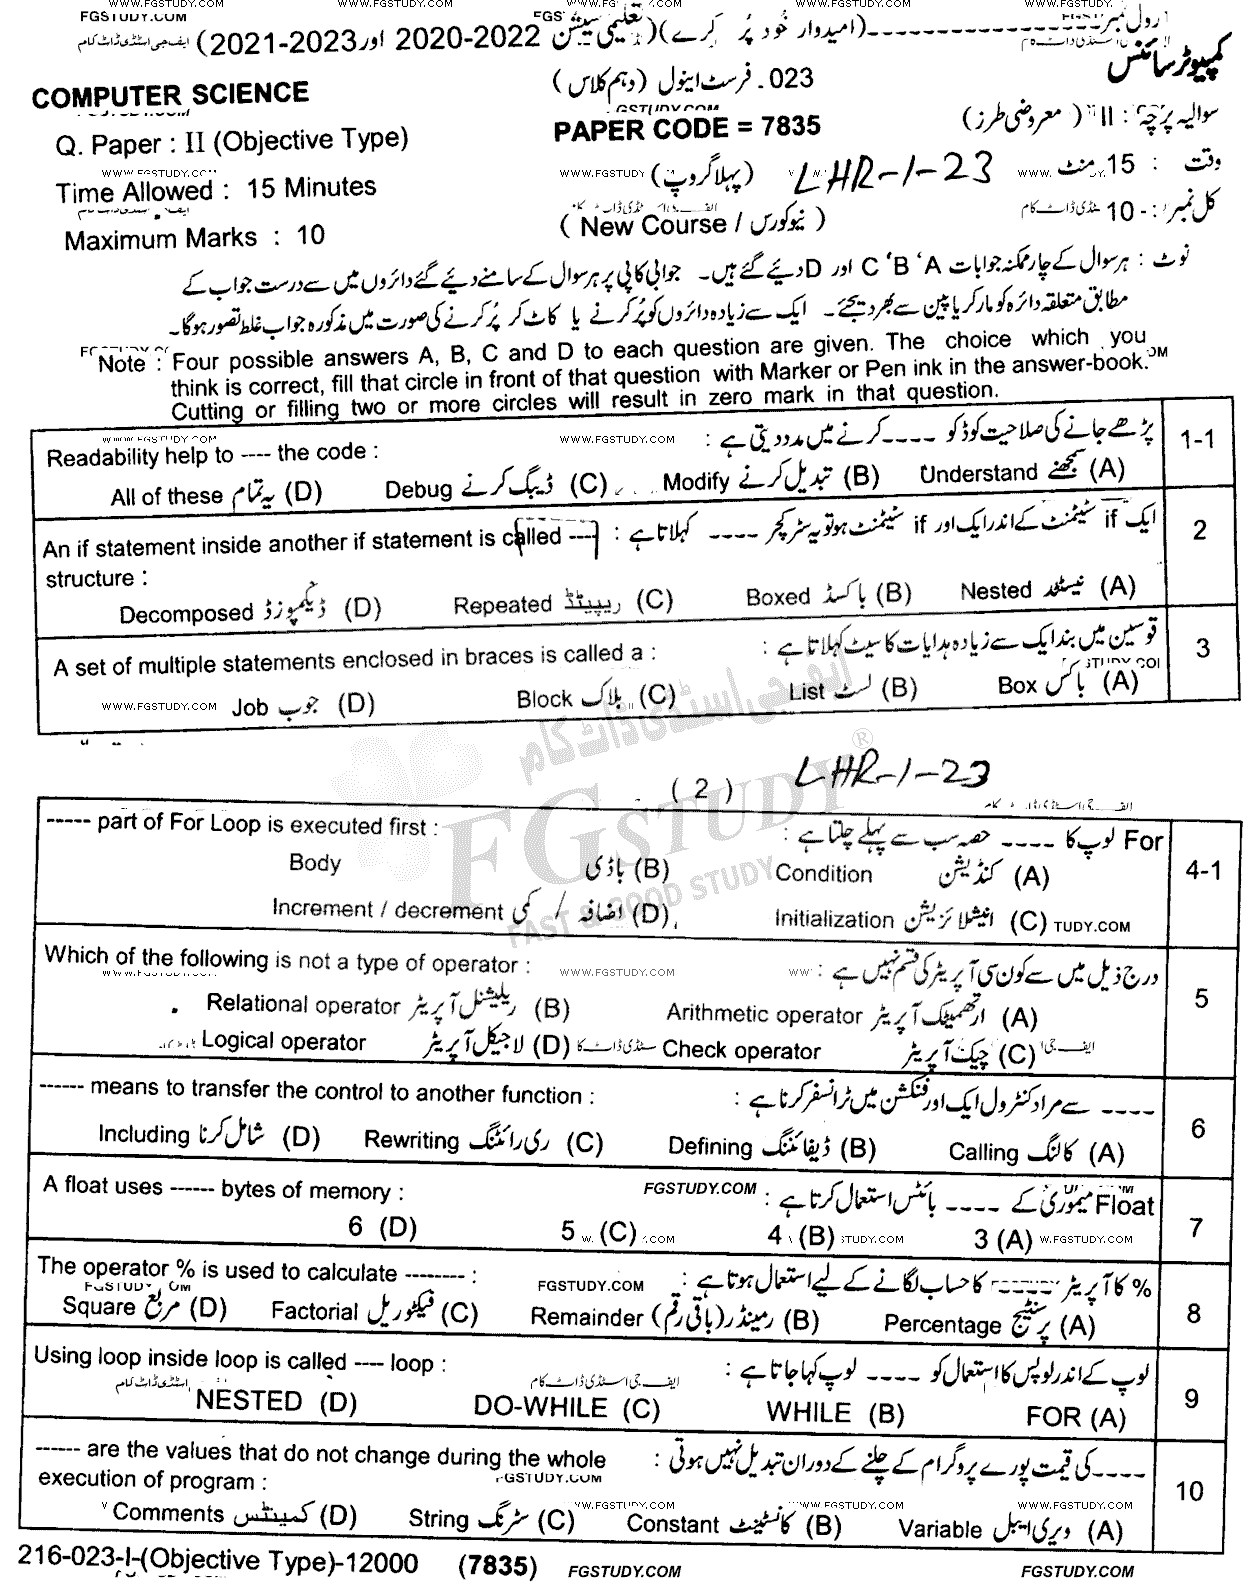 WWW.FGSTUDY.COM WWW.FGSTUDY.COM WWW.FGSTUDY.COM
رول نمبر ---------------- (امیدوار خود پُر کرے) (تعلیمی سیشن 2022-2020 اور 2023-2021)
FGSTUDY.COM ایف جی اسٹڈی ڈاٹ کام
کمپیوٹر سائنس
023۔ فرسٹ اینول (دہم کلاس)
COMPUTER SCIENCE
سوالیہ پرچہ : II (معروضی طرز)
PAPER CODE = 7835
Q. Paper : II (Objective Type)
وقت : 15 منٹ
LHR-1-23
(پہلا گروپ)
WWW.FGSTUDY
Time Allowed : 15 Minutes
کل نمبر : 10
( New Course / نیوکورس )
Maximum Marks : 10
نوٹ : ہر سوال کے چار ممکنہ جوابات A ' B ' C اور D دیئے گئے ہیں۔ جوابی کاپی پر ہر سوال کے سامنے دیئے گئے دائروں میں سے درست جواب کے
مطابق متعلقہ دائرہ کو مارکر یا پین سے بھر دیجئے۔ ایک سے زیادہ دائروں کو پُر کرنے یا کاٹ کر پُر کرنے کی صورت میں مذکورہ جواب غلط تصور ہوگا۔
Note : Four possible answers A, B, C and D to each question are given. The choice which you
think is correct, fill that circle in front of that question with Marker or Pen ink in the answer-book.
Cutting or filling two or more circles will result in zero mark in that question.
1-1 پڑھے جانے کی صلاحیت کوڈ کو ---- کرنے میں مدد دیتی ہے :
WWW.FGSTUDY.COM WWW.FGSTUDY.COM
Readability help to ---- the code :
(A) سمجھنے Understand (B) تبدیل کرنے Modify (C) ڈیبگ کرنے Debug (D) یہ تمام All of these
2 ایک if سٹیٹمنٹ کے اندر ایک اور if سٹیٹمنٹ ہو تو یہ سٹرکچر ---- کہلاتا ہے :
An if statement inside another if statement is called ----
structure :
(A) نیسٹڈ Nested (B) باکسڈ Boxed (C) ریپیٹڈ Repeated (D) ڈیکمپوزڈ Decomposed
3 قوسین میں بند ایک سے زیادہ ہدایات کا سیٹ کہلاتا ہے :
A set of multiple statements enclosed in braces is called a :
(A) باکس Box (B) لسٹ List (C) بلاک Block (D) جوب Job
WWW.FGSTUDY.COM
ایف جی اسٹڈی ڈاٹ کام
FGSTUDY®
FAST & GOOD STUDY
( 2 ) LHR-1-23
ایف جی اسٹڈی ڈاٹ کام
4-1 For لوپ کا ---- حصہ سب سے پہلے چلتا ہے :
----- part of For Loop is executed first :
(A) کنڈیشن Condition (B) باڈی Body
(C) انیشلائزیشن Initialization (D) اضافہ / کمی Increment / decrement
5 درج ذیل میں سے کون سی آپریٹر کی قسم نہیں ہے :
Which of the following is not a type of operator :
WWW.FGSTUDY.COM WWW.FGSTUDY.COM
(A) ارتھمیٹک آپریٹر Arithmetic operator (B) ریلیشنل آپریٹر Relational operator
(C) چیک آپریٹر Check operator (D) لاجیکل آپریٹر Logical operator
6 ---- سے مراد کنٹرول ایک اور فنکشن میں ٹرانسفر کرنا ہے :
------ means to transfer the control to another function :
(A) کالنگ Calling (B) ڈیفائننگ Defining (C) ری رائٹنگ Rewriting (D) شامل کرنا Including
7 Float میموری کے ---- بائٹس استعمال کرتا ہے :
A float uses ------ bytes of memory : FGSTUDY.COM
3 (A) 4 (B) 5 (C) 6 (D)
8 % کا آپریٹر ----- کا حساب لگانے کے لیے استعمال ہوتا ہے :
The operator % is used to calculate -------- : FGSTUDY.COM
(A) پرسنٹیج Percentage (B) ریمینڈر (باقی رقم) Remainder (C) فیکٹوریل Factorial (D) مربع Square
9 لوپ کے اندر لوپس کا استعمال کو ---- لوپ کہا جاتا ہے :
Using loop inside loop is called ---- loop :
ایف جی اسٹڈی ڈاٹ کام
FOR (A) WHILE (B) DO-WHILE (C) NESTED (D)
10 ---- کی قیمت پورے پروگرام کے چلنے کے دوران تبدیل نہیں ہوتی :
------ are the values that do not change during the whole
execution of program : FGSTUDY.COM
WWW.FGSTUDY.COM WWW.FGSTUDY.COM WWW.FGSTUDY.COM
(A) ویری ایبل Variable (B) کانسٹینٹ Constant (C) سٹرنگ String (D) کمینٹس Comments
216-023-I-(Objective Type)-12000 (7835) FGSTUDY.COM FGSTUDY.COM